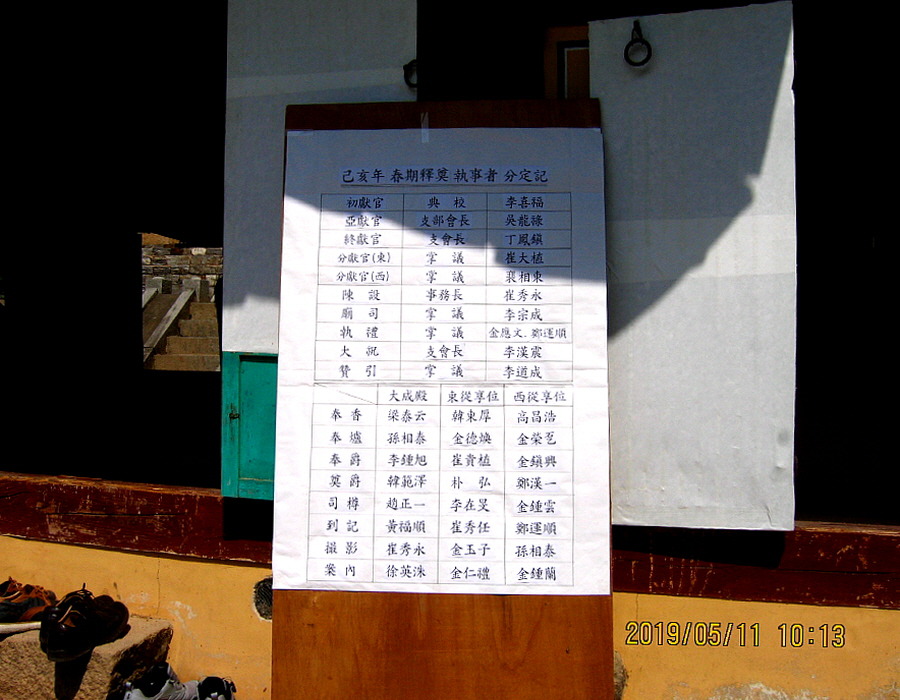 己亥年 春期釋奠 執事者 分定記
初獻官 典 校 李喜福
亞獻官 支部會長 吳龍祿
終獻官 支會長 丁鳳鎭
分獻官(東) 掌 議 崔大植
分獻官(西) 掌 議 裵相東
陳 設 事務長 崔秀永
廟 司 掌 議 李宗成
執 禮 掌 議 金應文. 鄭運順
大 祝 支會長 李漢震
贊 引 掌 議 李道成
大成殿 東從享位 西從享位
奉 香 梁泰云 韓東厚 高昌浩
奉 爐 孫相泰 金德煥 金榮
奉 爵 李鍾旭 崔貴植 金鎭興
奠 爵 韓範澤 朴 弘 鄭漢一
司 樽 趙正一 李在旻 金鍾雲
到 記 黃福順 崔秀任 鄭運順
撮 影 崔秀永 金玉子 孫相泰
案 內 徐英洙 金仁禮 金鍾蘭
2019/05/11 10:13